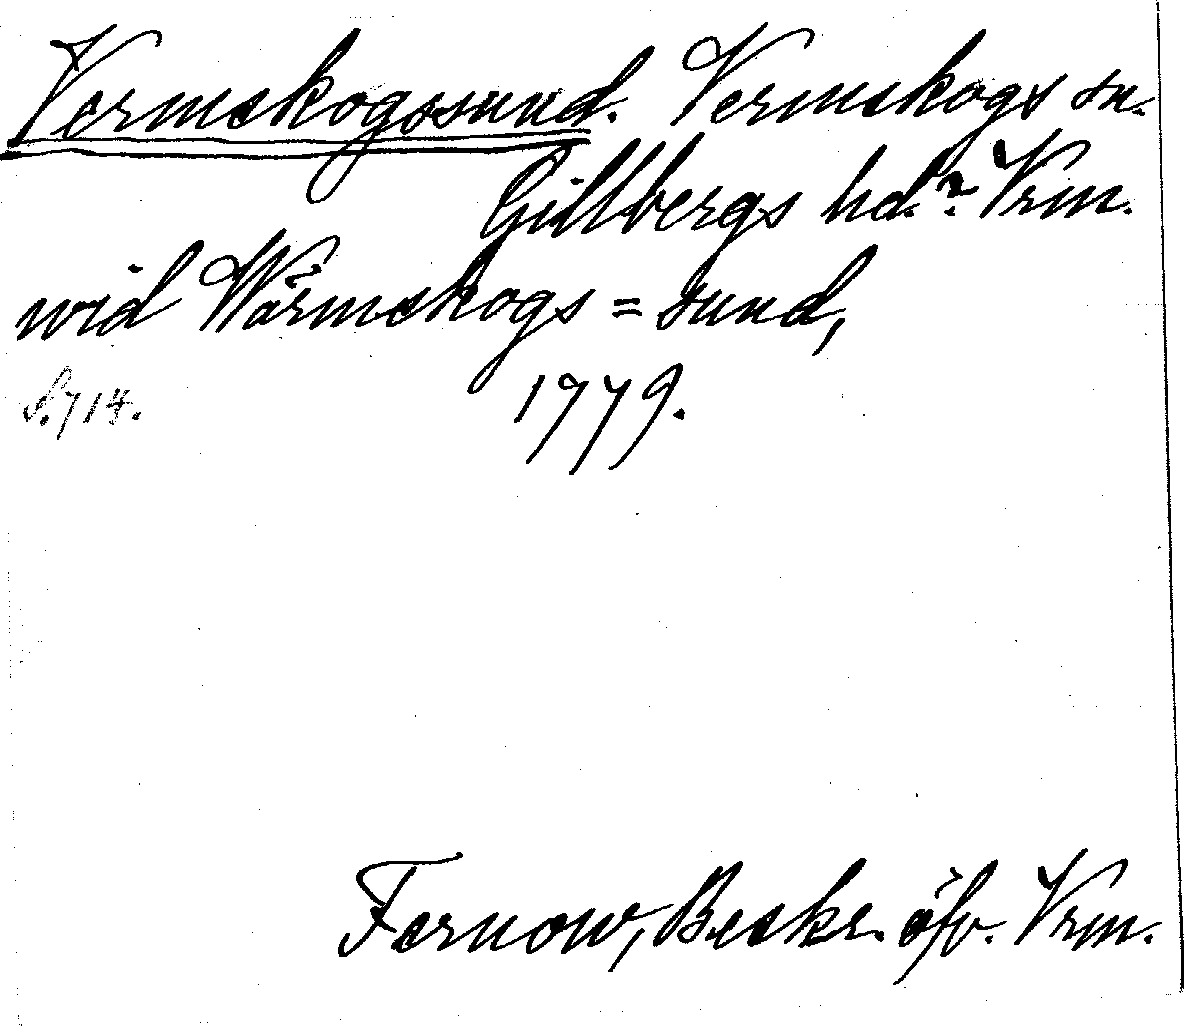 Vermskogssund. Vermskogs sn.
Gillbergs hd.? Vrm.
wid Wärmskogs=sund,
S. 714. 1779.
Fernow, Beskr. öfv. Vrm.